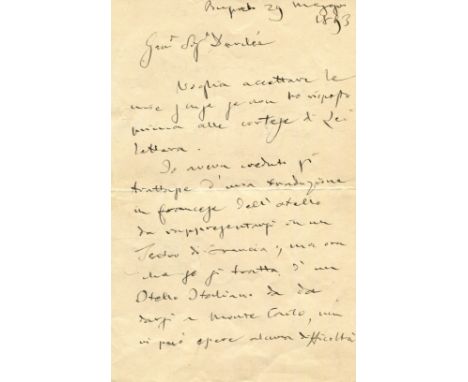 29 Maggio
1893
Gen. Sig. Dardée
Voglia accettare le
mie scuse se non ho risposto
prima alla cortese di Lei
lettera.
Io aveva creduto si
trattasse d'una traduzione
in francese dell'Otello
da rappresentarsi in un
Teatro di Francia; ma ora
che se si tratta d'un
Otello Italiano da
darsi a Monte Carlo, non
vi può essere alcuna difficoltà